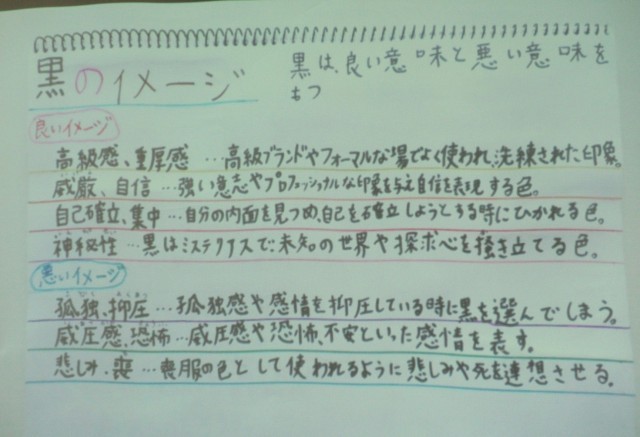 黒のイメージ
黒は、良い意味と悪い意味を
もつ
良いイメージ
高級感、重厚感…高級ブランドやフォーマルな場でよく使われ、洗練された印象。
威厳、自信…強い意志やプロフェッショナルな印象を与え自信を表現する色。
自己確立、集中…自分の内面を見つめ、自己を確立しようとする時にひかれる色。
神秘性…黒はミステリアスで、未知の世界や探求心を掻き立てる色。
悪いイメージ
孤独、抑圧…孤独感や感情を抑圧している時に黒を選んでしまう。
威圧感、恐怖…威圧感や恐怖、不安といった感情を表す。
悲しみ、喪…喪服の色として使われるように悲しみや死を連想させる。